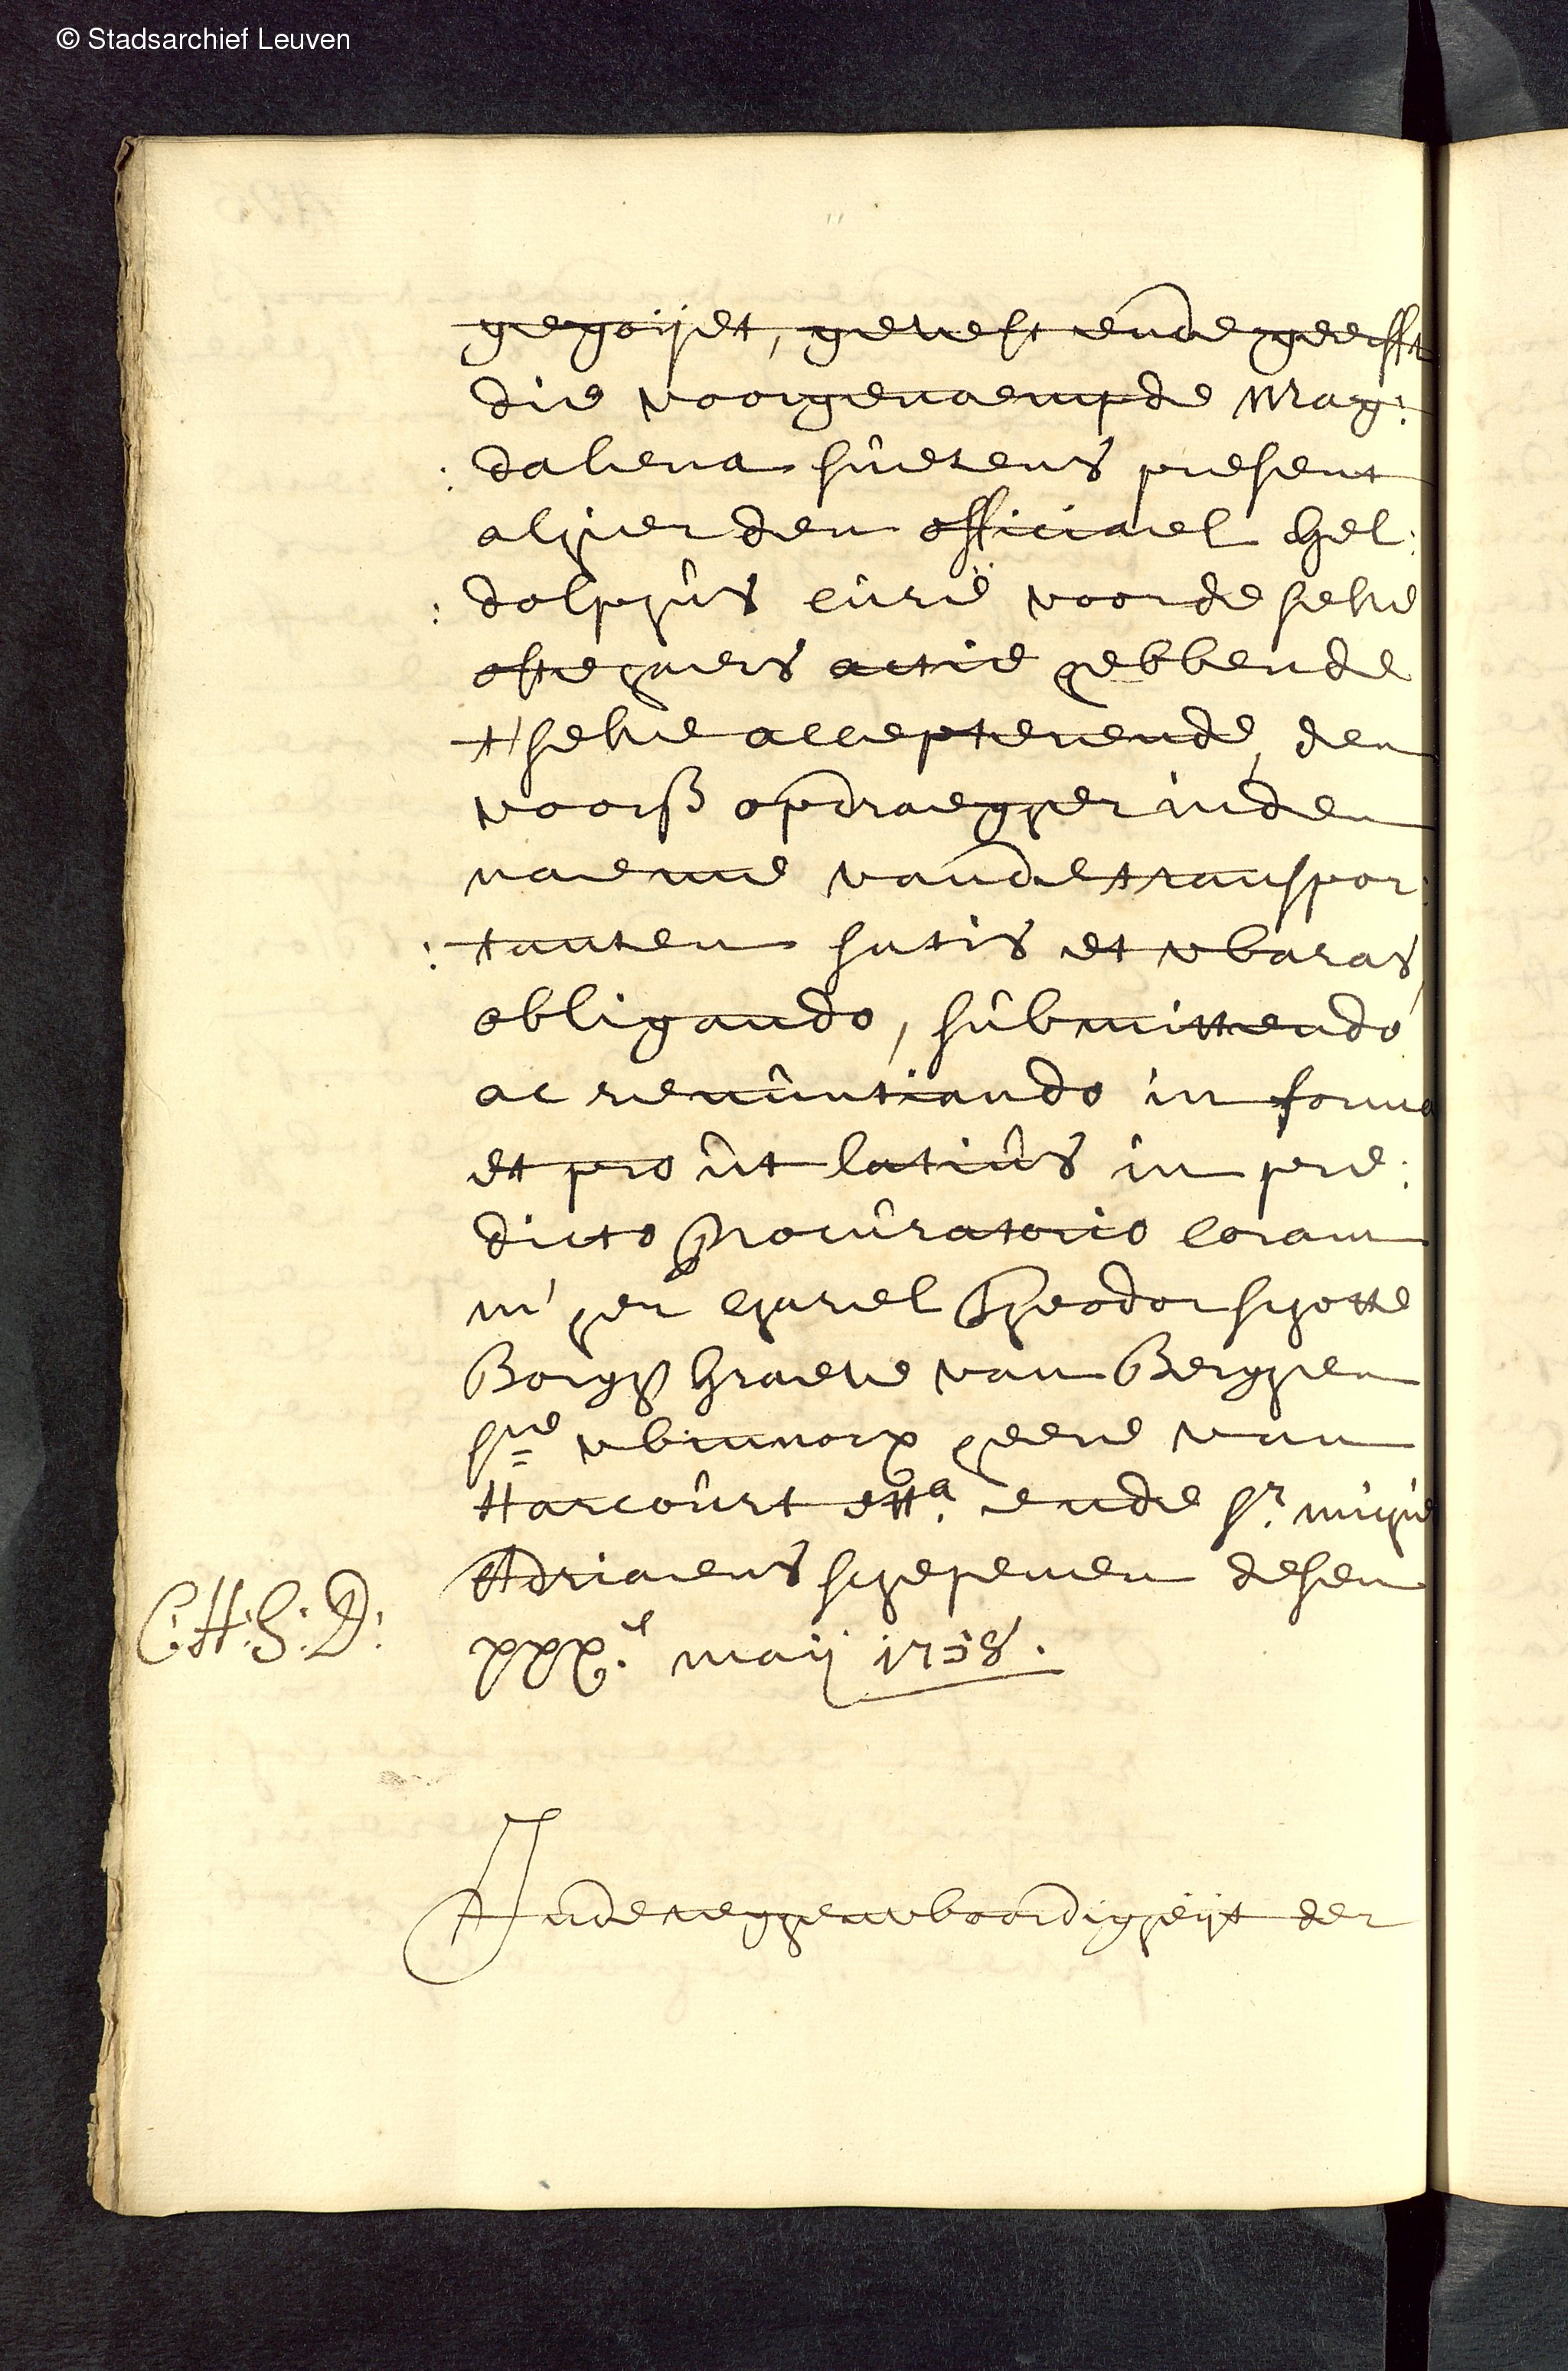 © Stadsarchief Leuven
gegoijt, gevest ende geerfft
die voorgenaempde Mag:
: dalena sûetens present
alhier den officiael Gel:
: dolphûs cûrië voor de selve
ofte haers actie hebbende
t'selve accepterende, den
voorß opdraegher inden
naeme vande transpor:
: tanten satis et waras
obligando, sûbmittendo
ac renûntiando in forma
et pro ût latiûs in pre:
dicto Procûratorio coram
m'her Charel Theodor schotte
Borghgraeve van Berghen
Ste winnox heere van
Harcoûrt etta. ende Sr. michie
Adriaens schepenen desen
C:H:S:D:
xxx.e maij 1738.
In de teghenwoordigheijt der